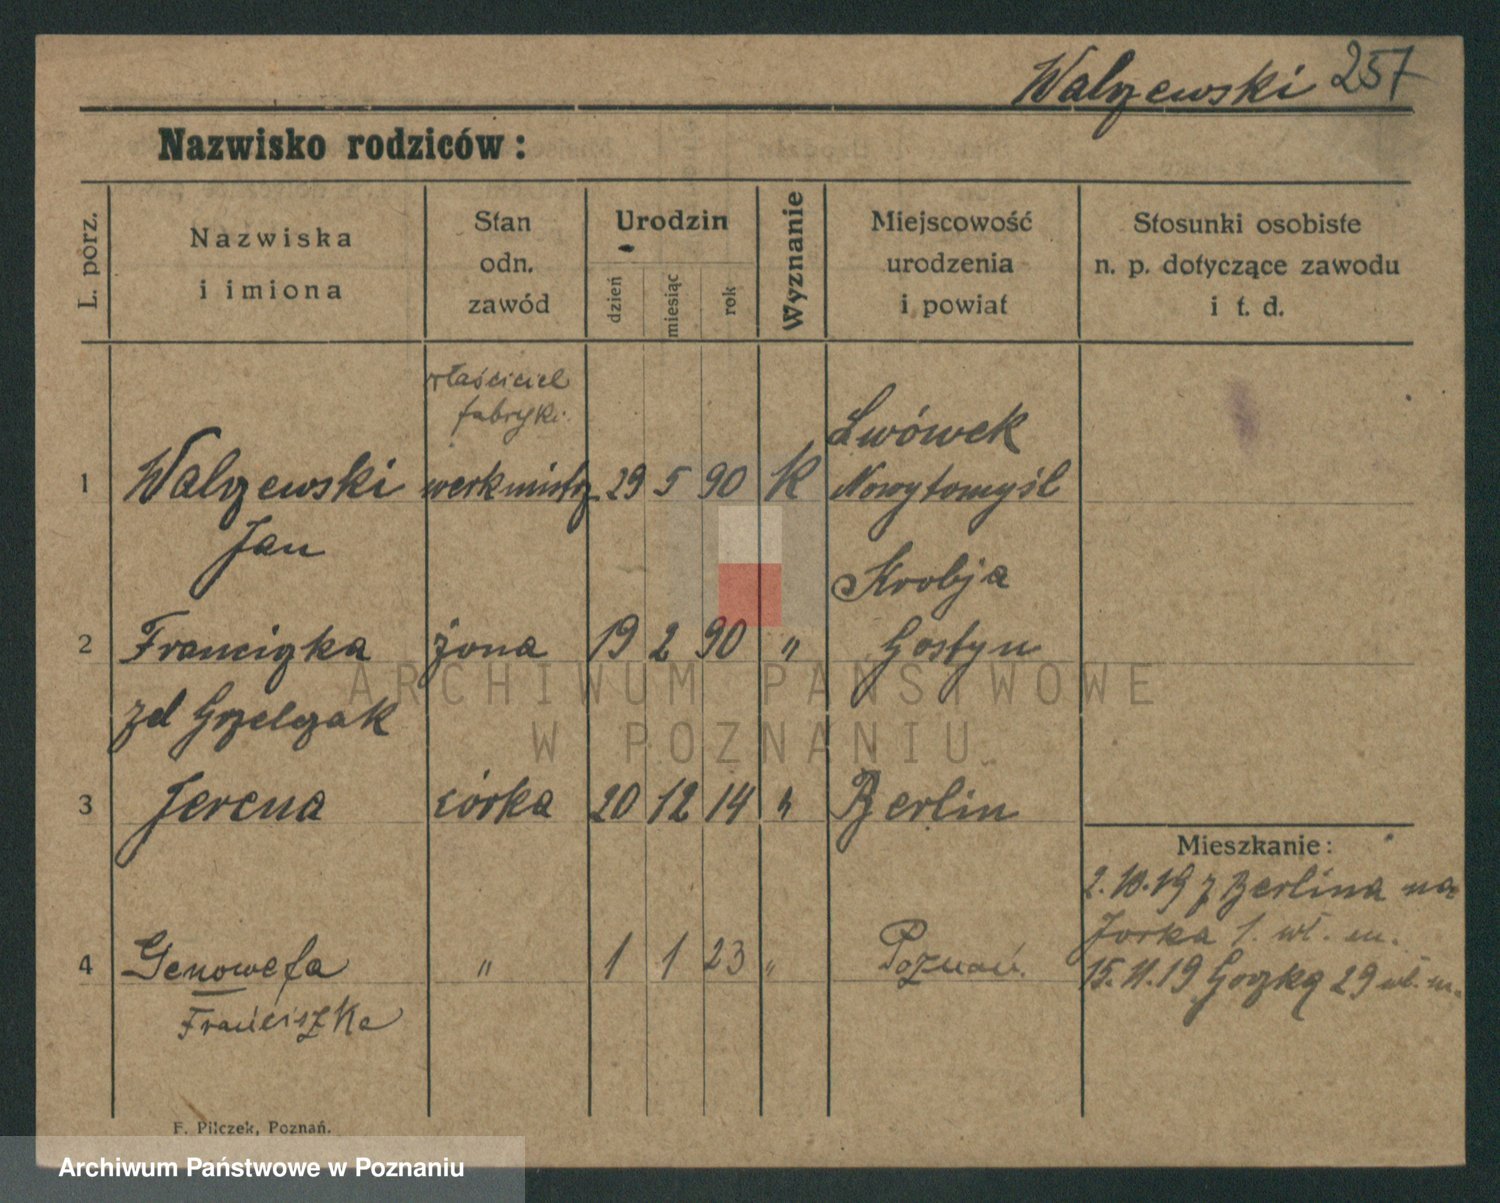 Walczewski 257
Nazwisko rodziców:
L. porz.
Nazwiska
i imiona
Stan
odn.
zawód
Urodzin
dzień
miesiąc
rok
Wyznanie
Miejscowość
urodzenia
i powiat
Stosunki osobiste
n. p. dotyczące zawodu
i t. d.
właściciel
fabryki
Lwówek
1 Walczewski werkmistrz 29 5 90 K Nowytomyśl
Jan
Krobja
2 Franciszka żona 19 2 90 " Gostyn
zd Grzelczak
3 Jerena córka 20 12 14 " Berlin
Mieszkanie:
2.10.19 z Berlina na
Jorka 1. wł. m.
4 Genowefa " 1 1 23 " Poznań. 15.11.19 29 wł. m.
Franciszka
F. Pilczek, Poznań.
ARCHIWUM PAŃSTWOWE
W POZNANIU
Archiwum Państwowe w Poznaniu